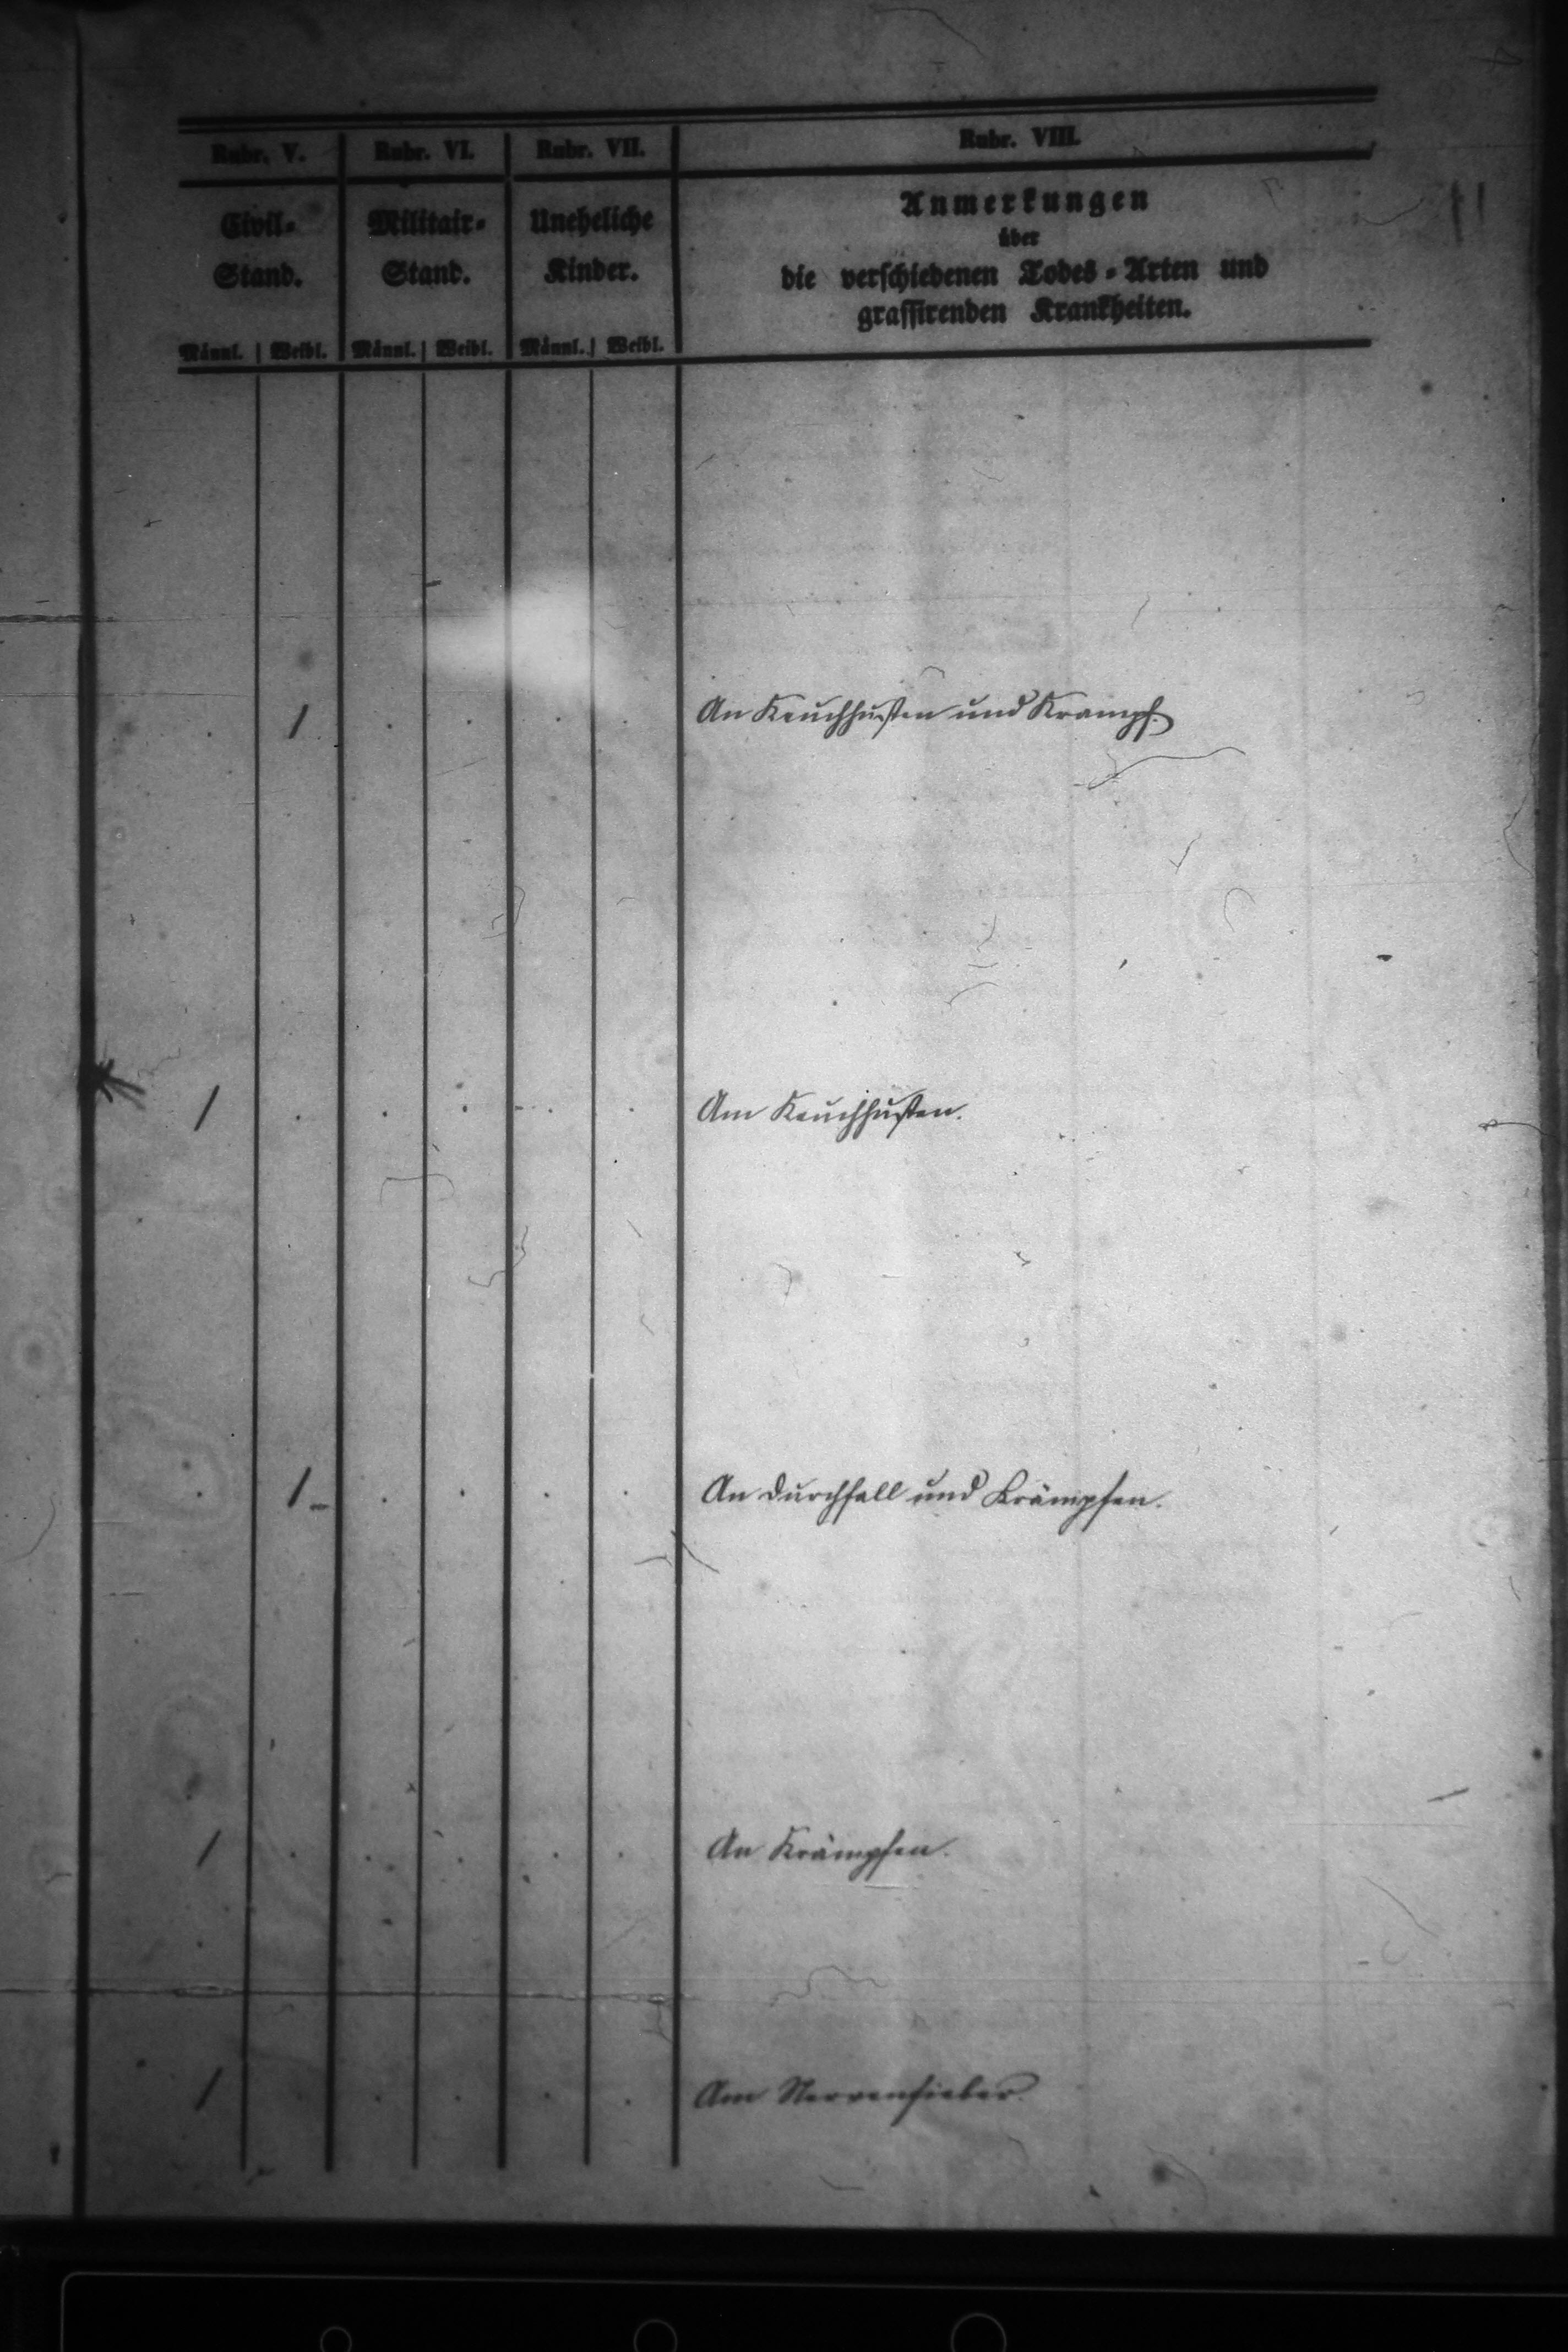 Rubr. V. Rubr. VI. Rubr. VII. Rubr. VIII.
Civil- Militair- Uneheliche Anmerkungen
über
Stand. Stand. Kinder. die verschiedenen Todes-Arten und
grassirenden Krankheiten.
Männl. Weibl. Männl. Weibl. Männl. Weibl.
. 1 . . . . An Keuchhusten und Krampf.
1 . . . . . Am Keuchhusten.
. 1 . . . . An Durchfall und Krämpfen.
1 . . . . . An Krämpfen.
1 . . . . . Am Nervenfieber.